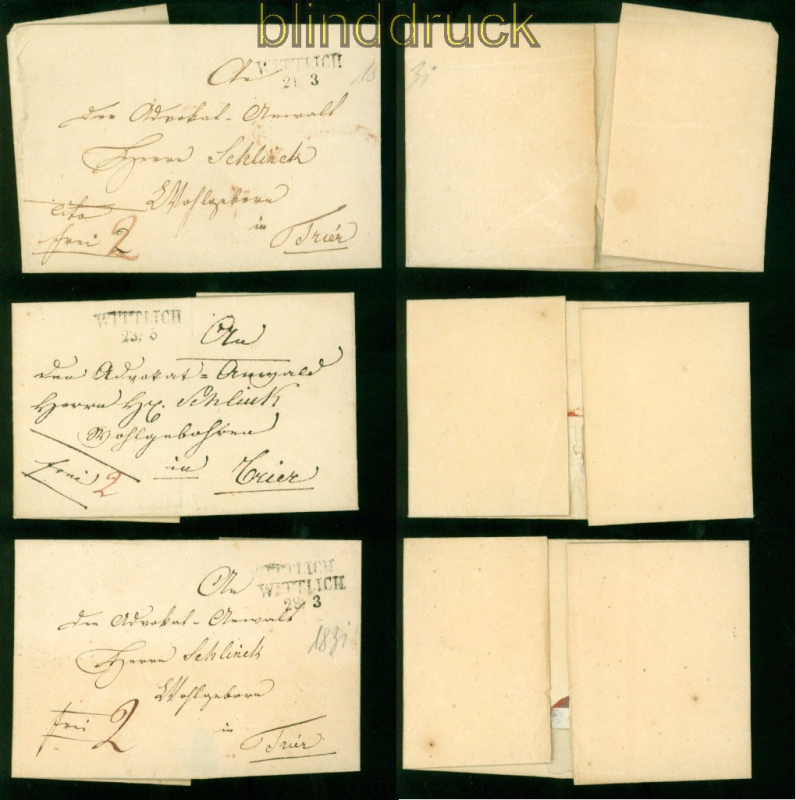 blinddruck
WITTLICH
3
An
den Advokat-Anwalt
Herrn Schlinck
Wohlgeborn
in
Trier
cito
frei 2
2
WITTLICH
An
den Advokat-Anwald
Herrn Schlink
Wohlgebohren
in Trier
frei 2
WITTLICH
WITTLICH
3
An
den Advokat-Anwalt
Herrn Schlinck
Wohlgeborn
in
Trier
frei 2